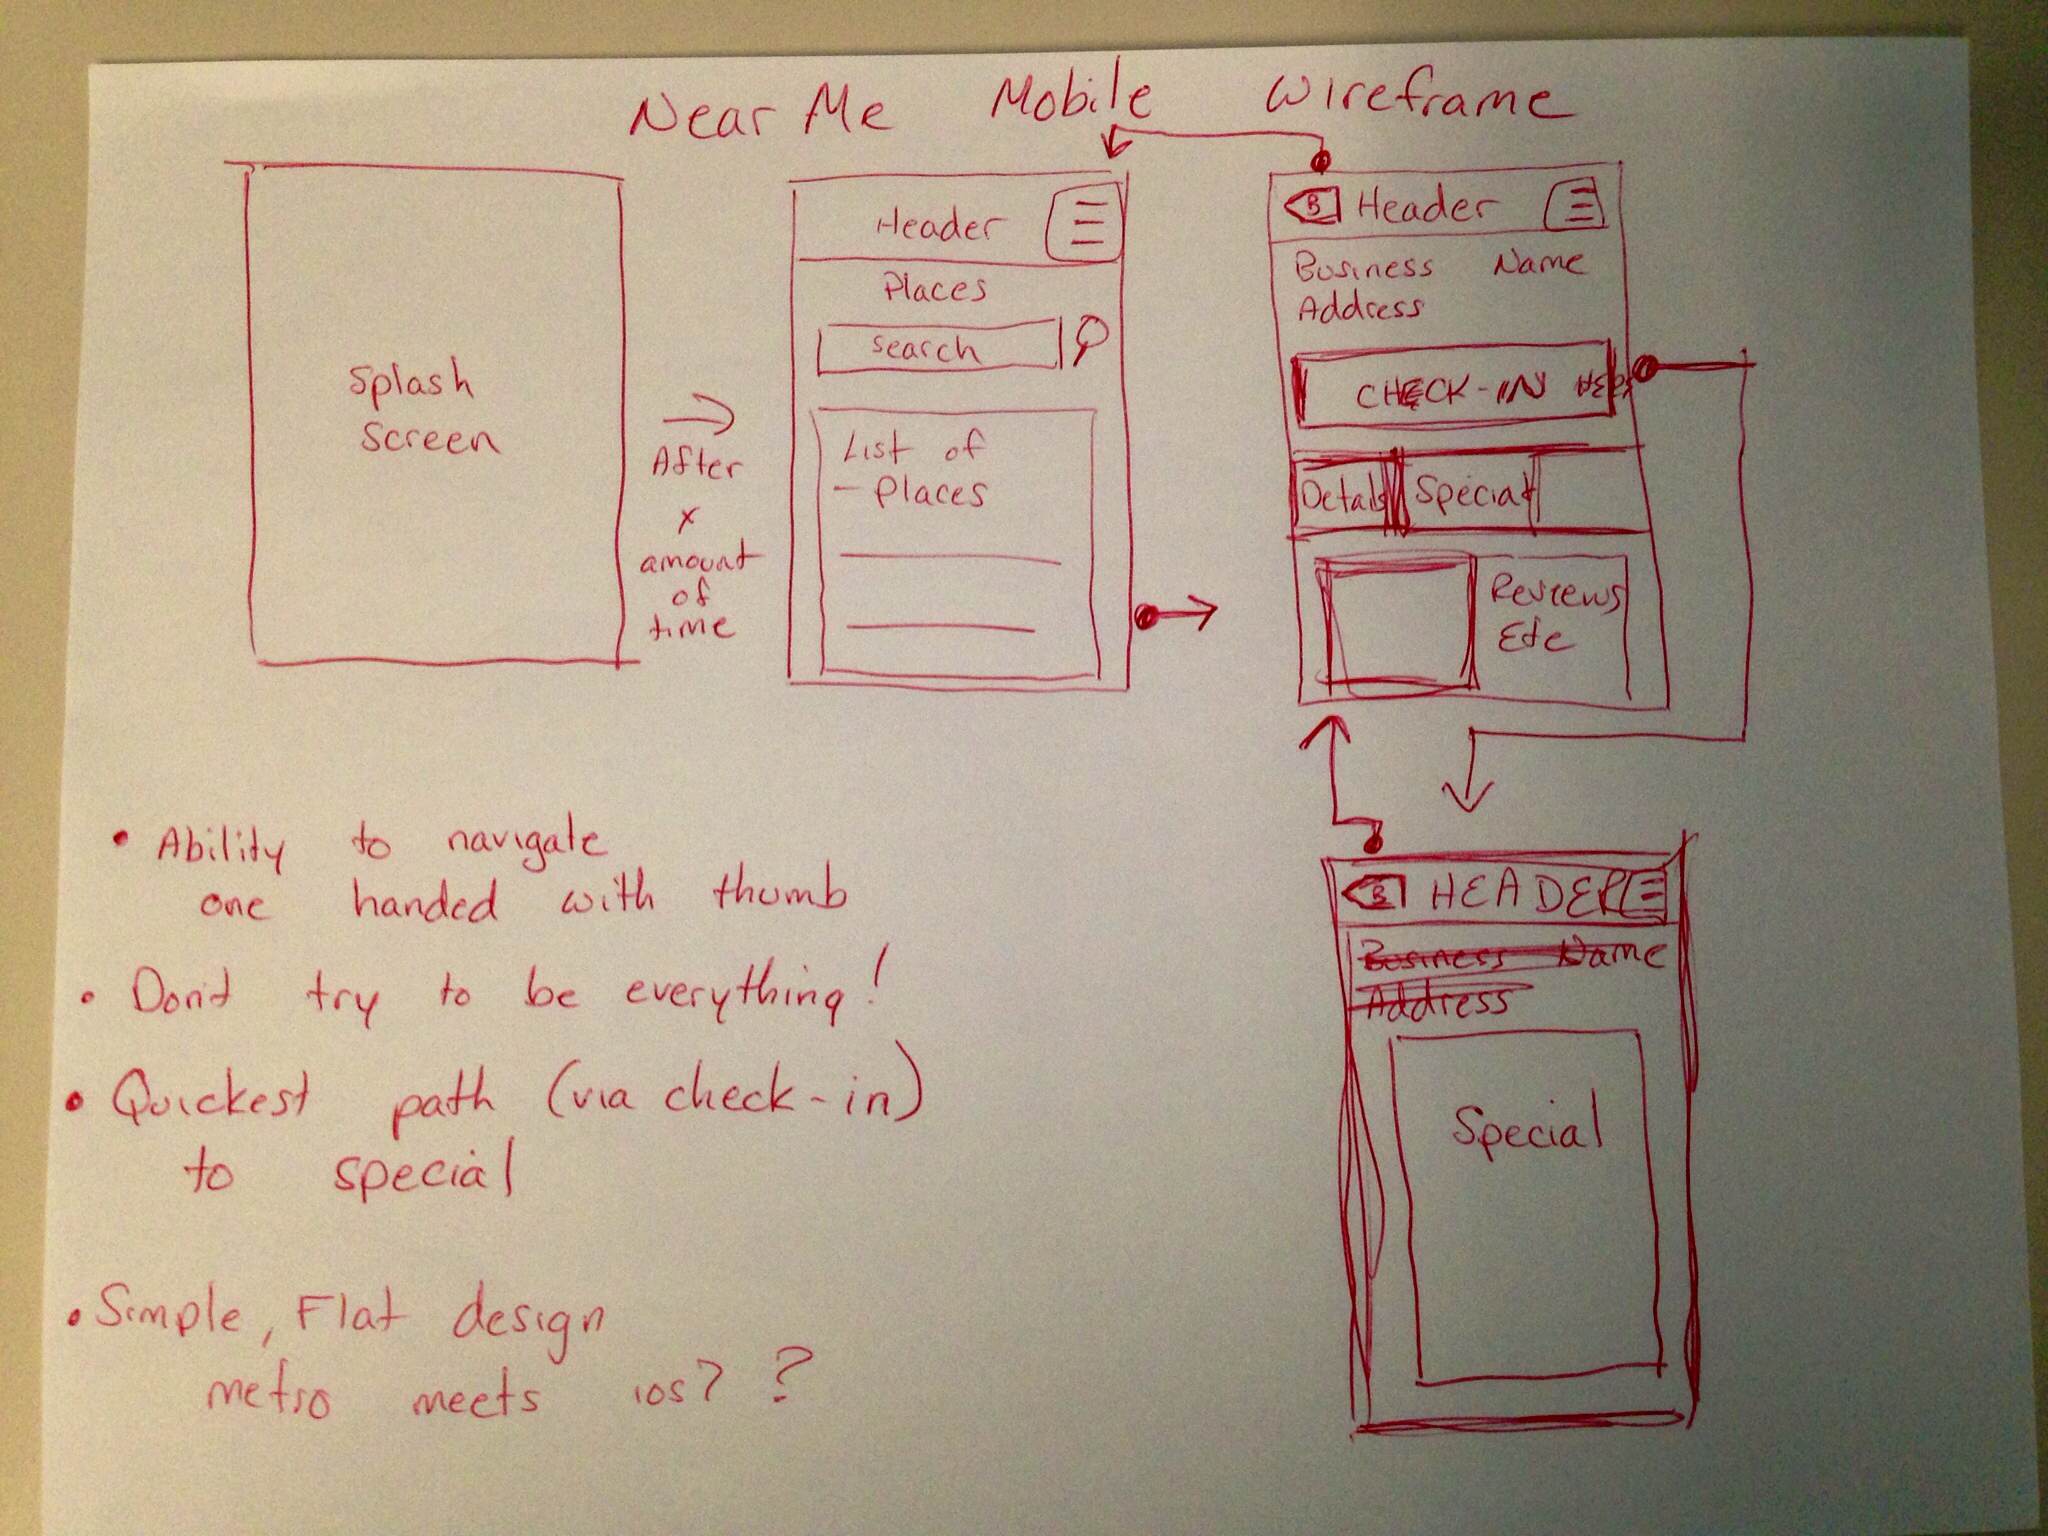 Near Me Mobile Wireframe
Splash
Screen
After
x
amount
of
time
Header
Places
search
List of
- Places
B Header
Business Name
Address
CHECK-IN HERE
Details Special
Reviews
Etc
B HEADER
Business Name
Address
Special
• Ability to navigate
one handed with thumb
• Don't try to be everything!
• Quickest path (via check-in)
to special
• Simple, Flat design
metro meets ios7 ?